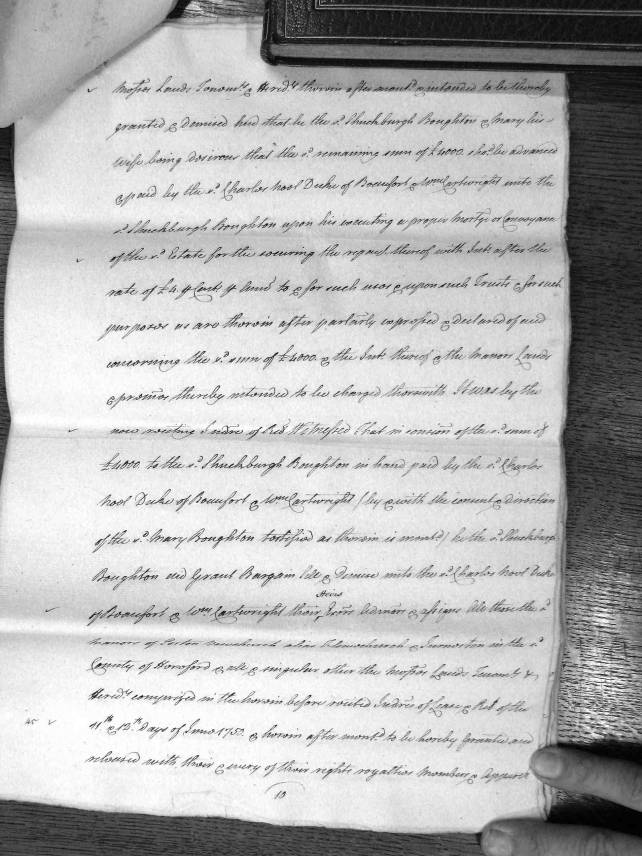 Messes Lands Tenemts & Heredts therein after mentd & intended to be thereby
granted & demised And that he the sd. Shuckburgh Boughton & Mary his
Wife being desirous that the sd. remaining sum of £4000. shod. be advanced
& paid by the sd. Charles Noel Duke of Beaufort & Wm Cartwright unto the
sd. Shuckburgh Boughton upon his executing a proper Mortge or Conveyance
of the sd. Estate for the securing the repayt. thereof with Intt. after the
rate of £4. ⅌ Cent. ⅌ Annū to & for such uses & upon such Trusts & for such
purposes as are therein after partarly expressed & declared of and
concerning the sd. sum of £4000. & the Intt. thereof & the Manors Lands
& premes thereby intended to be charged therewith It was by the
now reciting Indre of Rele Witnessed That in conson of the sd. sum of
£4000. to the sd. Shuckburgh Boughton in hand paid by the sd. Charles
Noel Duke of Beaufort & Wm Cartwright (by & with the consent & direction
of the sd. Mary Boughton testified as therein is mentd.) he the sd. Shuckburgh
Boughton did Grant Bargain Sell & Demise unto the sd. Charles Noel Duke
Heirs
of Beaufort & Wm. Cartwright their Exõrs Admõrs & assigns All those the sd.
Manors of alias & in the sd.
County of Hereford & all & singular other the Messes Lands Tenemts &
Heredts comprized in the herein before recited Indres of Lease & Rele of the
11th & 12th Days of June 1750. & herein after mentd. to be hereby granted and
45
released with their & every of their rights royalties Members & Appurts
13